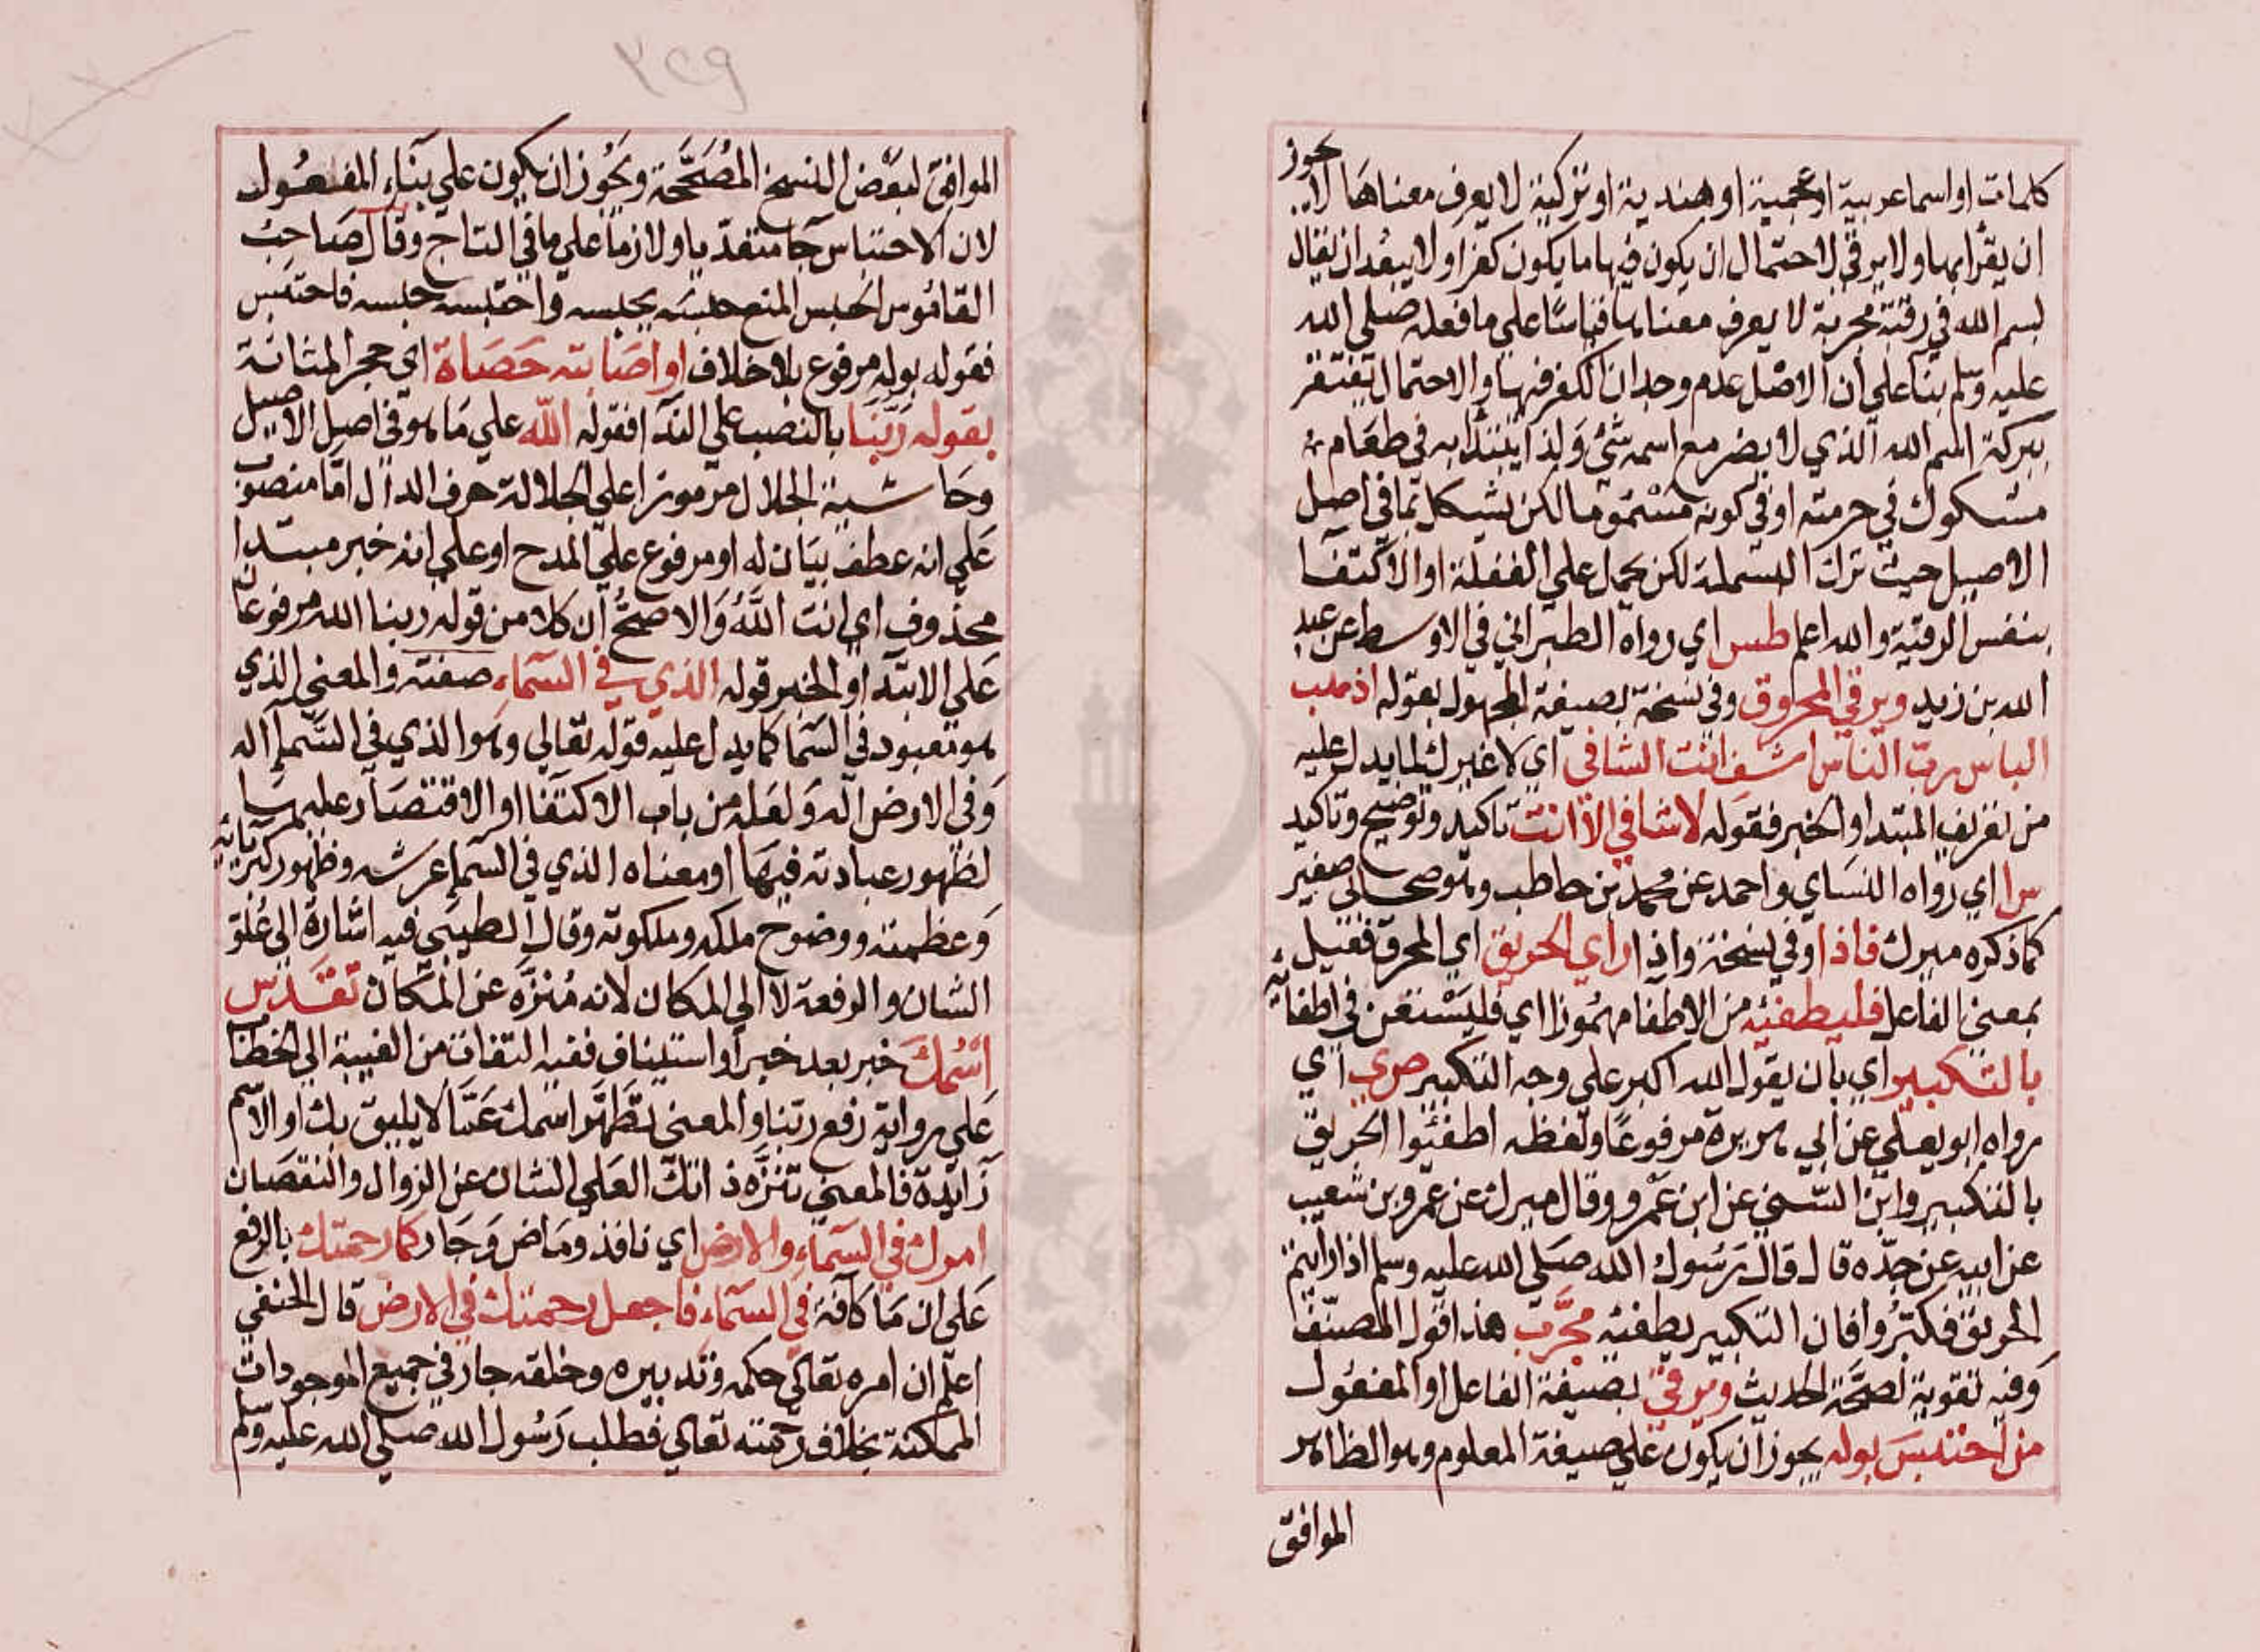 كلمات او اسما عربية او عجمية او هندية او تركية لا يعرف معناها لا يجوز
ان يقرا بها ولا يرقي لاحتمال ان يكون فيها ما يكون كفرا ولا يبعد ان يقال
بسم الله في رقية مجربة لا يعرف معناها قياسا علي ما فعله صلي الله
عليه وسلم بنا علي ان الاصل عدم وجدان الكفر فيها والاحتمال يغتفر
ببركة اسم الله الذي لا يضر مع اسمه شئ ولذا يبتدا به في طعام
مشكوك في حرمته او في كونه مسموما لكن يشكل بما في اصل
الاصيل حيث ترك البسملة لكن يحمل علي الغفلة او الاكتفا
بنفس الرقية والله اعلم طس اي رواه الطبراني في الاوسط عن عبد
الله بن زيد ويرقي المحروق وفي نسخة بصيغة المجهول بقوله اذهب
الباس رب الناس اشف انت الشافي اي لا غيرك لما يدل عليه
من تعريف المبتدا والخبر فقوله لا شافي الا انت تاكيد وتوضيح وتاكيد
س ا اي رواه النساي واحمد عن محمد بن حاطب وهو صحابي صغير
كما ذكره ميرك فاذا وفي نسخة واذا راي الحريق اي المحرق فعيل
بمعني الفاعل فليطفئه من الاطفا مهموزا اي فليستعن في اطفائه
بالتكبير اي بان يقول الله اكبر علي وجه التكبير ص ي اي
رواه ابو يعلي عن ابي هريرة مرفوعا ولفظه اطفئوا الحريق
بالتكبير وابن السني عن ابن عمرو وقال ميرك عن عمرو بن شعيب
عن ابيه عن جده قال قال رسول الله صلي الله عليه وسلم اذا رايتم
الحريق فكبروا فان التكبير يطفئه مجرب هذا قول المصنف
وفيه تقوية لصحة الحديث ويرقي بصيغة الفاعل او المفعول
من احتبس بوله يجوز ان يكون علي صيغة المعلوم وهو الظاهر
الموافق
٣٤٩
الموافق لبعض النسخ المصححة ويجوز ان يكون علي بناء المفعول
لان الاحتباس جا متعديا ولازما علي ما في التاج وقال صاحب
القاموس الحبس المنع حبسه يحبسه واحتبسه حبسه فاحتبس
فقوله بوله مرفوع بلا خلاف او اصابته حصاة اي حجر المثانة
بقوله ربنا بالنصب علي الندا فقوله الله علي ما هو في اصل الاصيل
وحاشية الجلال مرموزا علي الجلالة حرف الدال اما منصوب
علي انه عطف بيان له او مرفوع علي المدح او علي انه خبر مبتدا
محذوف اي انت الله والاصح ان كلا من قوله ربنا الله مرفوعا
علي الابتدا والخبر قوله الذي في السماء صفته والمعني الذي
هو معبود في السما كما يدل عليه قوله تعالي وهو الذي في السماء اله
وفي الارض اله ولعله من باب الاكتفا او الاقتصار عليها
لظهور عبادته فيها او معناه الذي في السماء عرشه وظهور كبريائه
وعظمته ووضوح ملكه وملكوته وقال الطيبي فيه اشارة الي علو
الشان والرفعة لا الي المكان لانه منزه عن المكان تقدس
اسمك خبر بعد خبر او استيناف ففيه التفات من الغيبة الي الخطاب
علي رواية رفع ربنا والمعني تطهر اسمك عما لا يليق بك او الاسم
زايدة فالمعني تنزه ذاتك العلي الشان عن الزوال والنقصان
امرك في السماء والارض اي نافذ وماض وجار كما رحمتك بالرفع
علي ان ما كافة في السماء فاجعل رحمتك في الارض قال الحنفي
اعلم ان امره تعالي حكمه وتدبيره وخلقه جار في جميع الموجودات
الممكنة بخلاف رحمته تعالي فطلب رسول الله صلي الله عليه وسلم